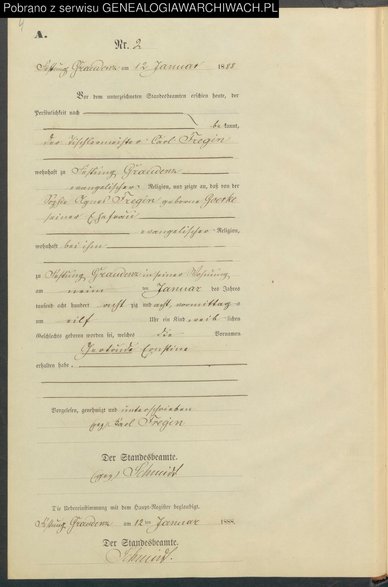 Pobrano z serwisu GENEALOGIAWARCHIWACH.PL
A.
Nr. 2
Festung Graudenz am 12 Januar 1888
Vor dem unterzeichneten Standesbeamten erschien heute, der
Persönlichkeit nach
be kannt,
der Tischlermeister Carl Fregin
wohnhaft zu Festung Graudenz
evangelischer Religion, und zeigte an, daß von der
Agnes Fregin geborne Goerke
seiner Ehefrau
evangelischer Religion,
wohnhaft bei ihm
zu Festung Graudenz in seiner Wohnung
am neun ten Januar des Jahres
tausend acht hundert acht zig und acht, vormittag s
um eilf Uhr ein Kind weib lichen
Geschlechts geboren worden sei, welches die Vornamen
Gertrude Ernstine
erhalten habe.
Vorgelesen, genehmigt und unterschrieben
gez. Carl Fregin
Der Standesbeamte.
(gez) Schmidt
Die Uebereinstimmung mit dem Haupt-Register beglaubigt.
Festung Graudenz am 12 ten Januar 1888.
Der Standesbeamte.
Schmidt.